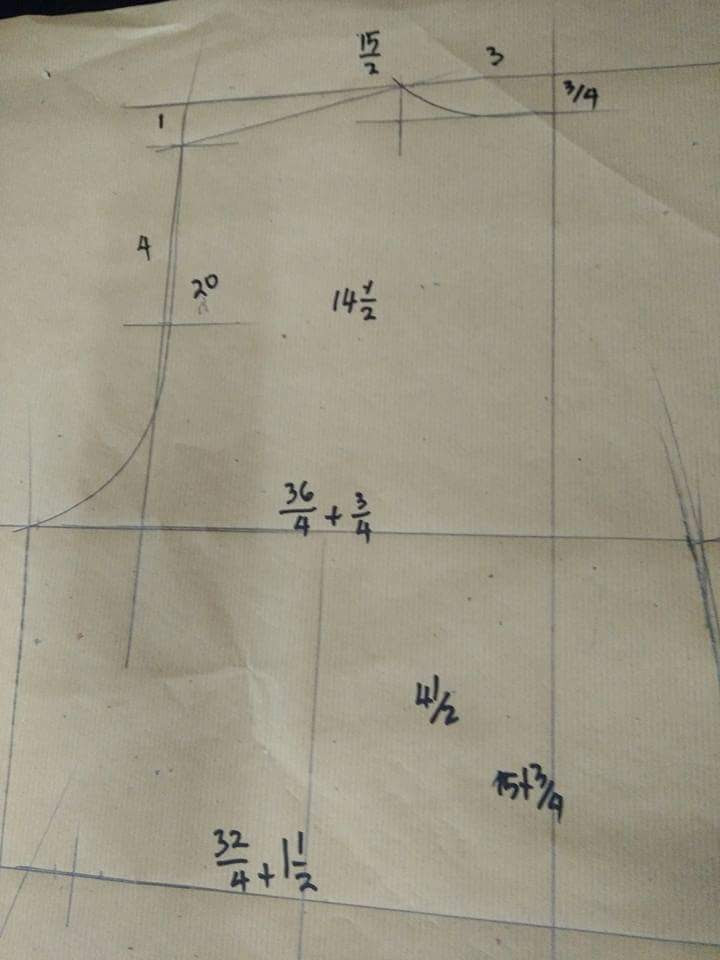 15/2
3
3/4
1
4
20
14 1/2
36/4 + 3/4
4 1/2
15+3/4
32/4 + 1 1/2